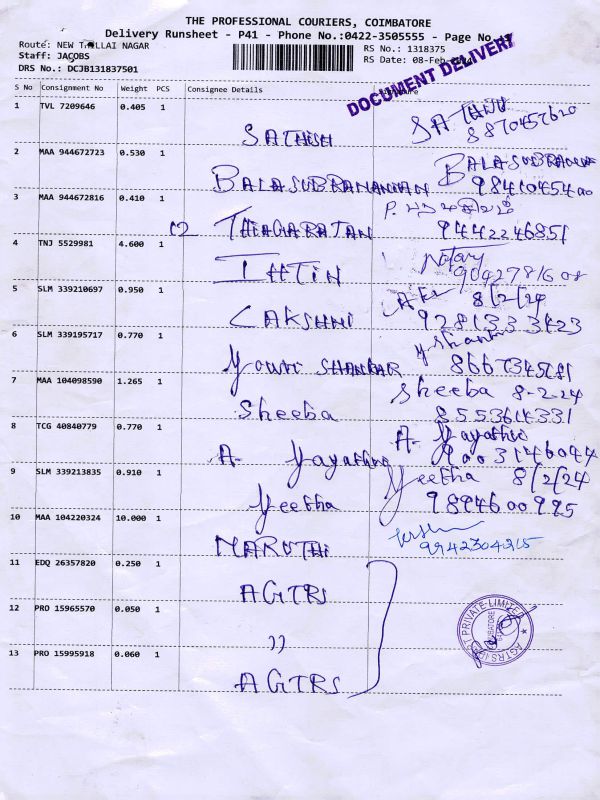 THE PROFESSIONAL COURIERS, COIMBATORE
Delivery Runsheet - P41 - Phone No.:0422-3505555 - Page No.
Route: NEW THILLAI NAGAR
RS No.: 1318375
Staff: JACOBS
RS Date: 08-Feb
DRS No.: DCJB131837501
DOCUMENT DELIVERY
S No Consignment No Weight PCS Consignee Details
1 TVL 7209646 0.405 1
SATHISH
8870457620
2 MAA 944672723 0.530 1
BALASUBRAMANIAN
BALASUBRAMA
9841045400
3 MAA 944672816 0.410 1
THIAGARAJAN
9442246851
4 TNJ 5529981 4.600 1
Notary
5 SLM 339210697 0.950 1
LAKSHMI
8/2/24
9281333423
6 SLM 339195717 0.770 1
SHANKAR
7 MAA 104098590 1.265 1
Sheeba
Sheeba 8-2-24
8553614331
8 TCG 40840779 0.770 1
A.
A.
9003146044
9 SLM 339213835 0.910 1
8/2/24
9894600995
10 MAA 104220324 10.000 1
MARUTHI
11 EDQ 26357820 0.250 1
AGTRS
12 PRO 15965570 0.050 1
))
13 PRO 15995918 0.060 1
AGTRS